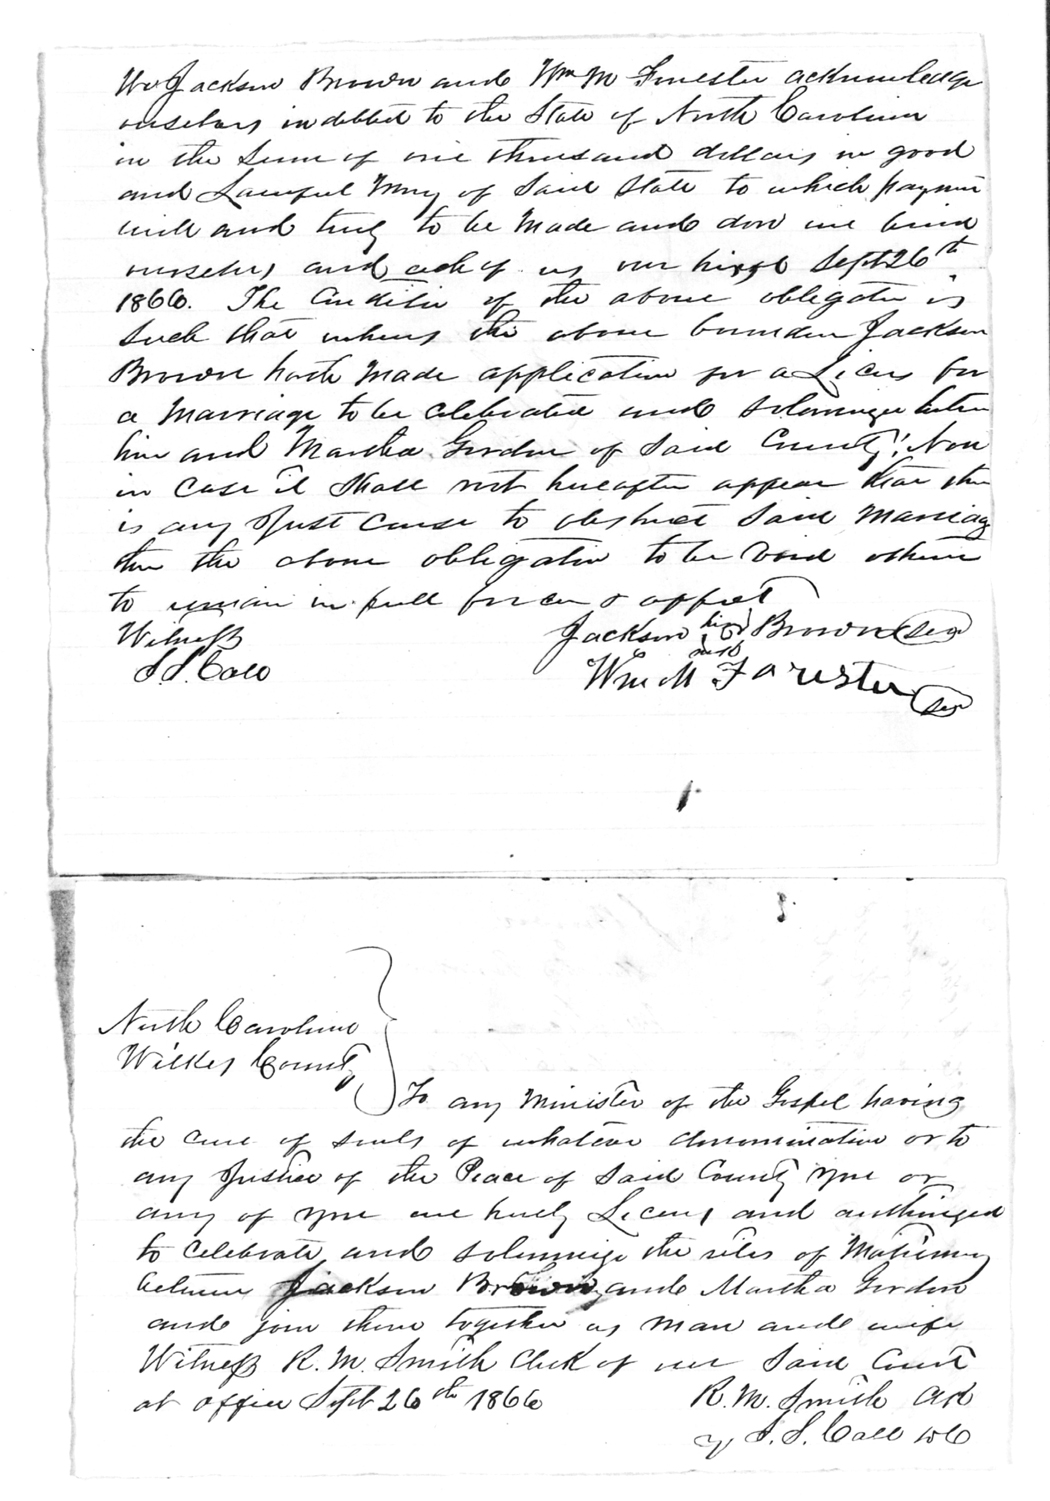 We Jackson Brown and Wm M Forester acknowledge
ourselves indebted to the State of North Carolina
in the Sum of one thousand dollars in good
and Lawful Mony of Said State to which paymen
will and truly to be Made and don we bind
ourselves and each of us our hirs Sept 26th
1866. The Condition of the above obligation is
Such that whereas the above bounden Jackson
Brown hath Made application for a Licens for
a Marriage to be celebrated and solemnize betwen
him and Martha Gordon of Said County; Now
in case it Shall not hereafter appear that ther
is any Just cause to obstruct Said Marriag
then the above obligation to be void otherwise
to remain in full force & affect
Witness
S. S. Call
Jackson his X Brown Seal
mark
Wm M Forester Seal
North Carolina
Wilkes County
To any Minister of the Gospel having
the cure of souls of whatever denomination or to
any Justice of the Peace of Said County you or
any of you are hereby Licens and authorized
to celebrate and solemnize the rites of Matrimony
between Jackson Brown and Martha Gordon
and join them together as man and wife
Witness R. M. Smith Clerk of our Said Court
at office Sept 26th 1866
R. M. Smith Clk
By S. S. Call DC